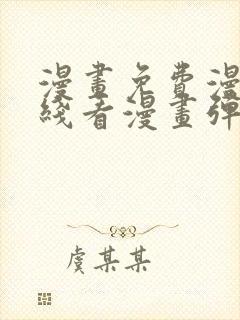 漫畫免費漫
綫看漫畫彈
虞某某